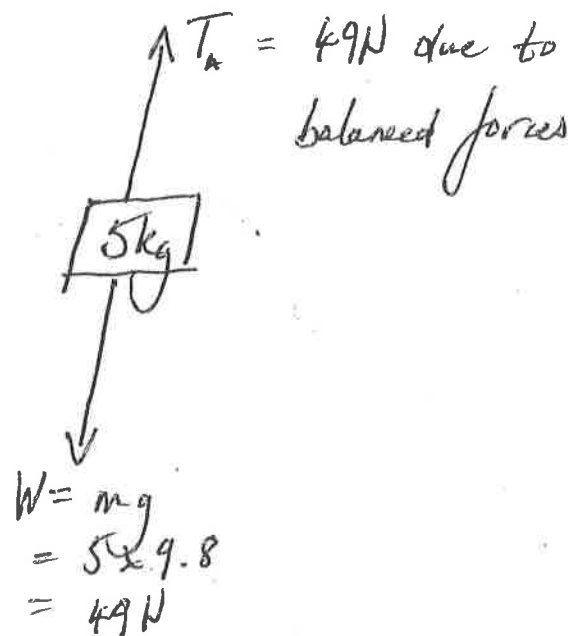 T_A = 49N due to
balanced forces
5kg
W = mg
= 5 x 9.8
= 49N